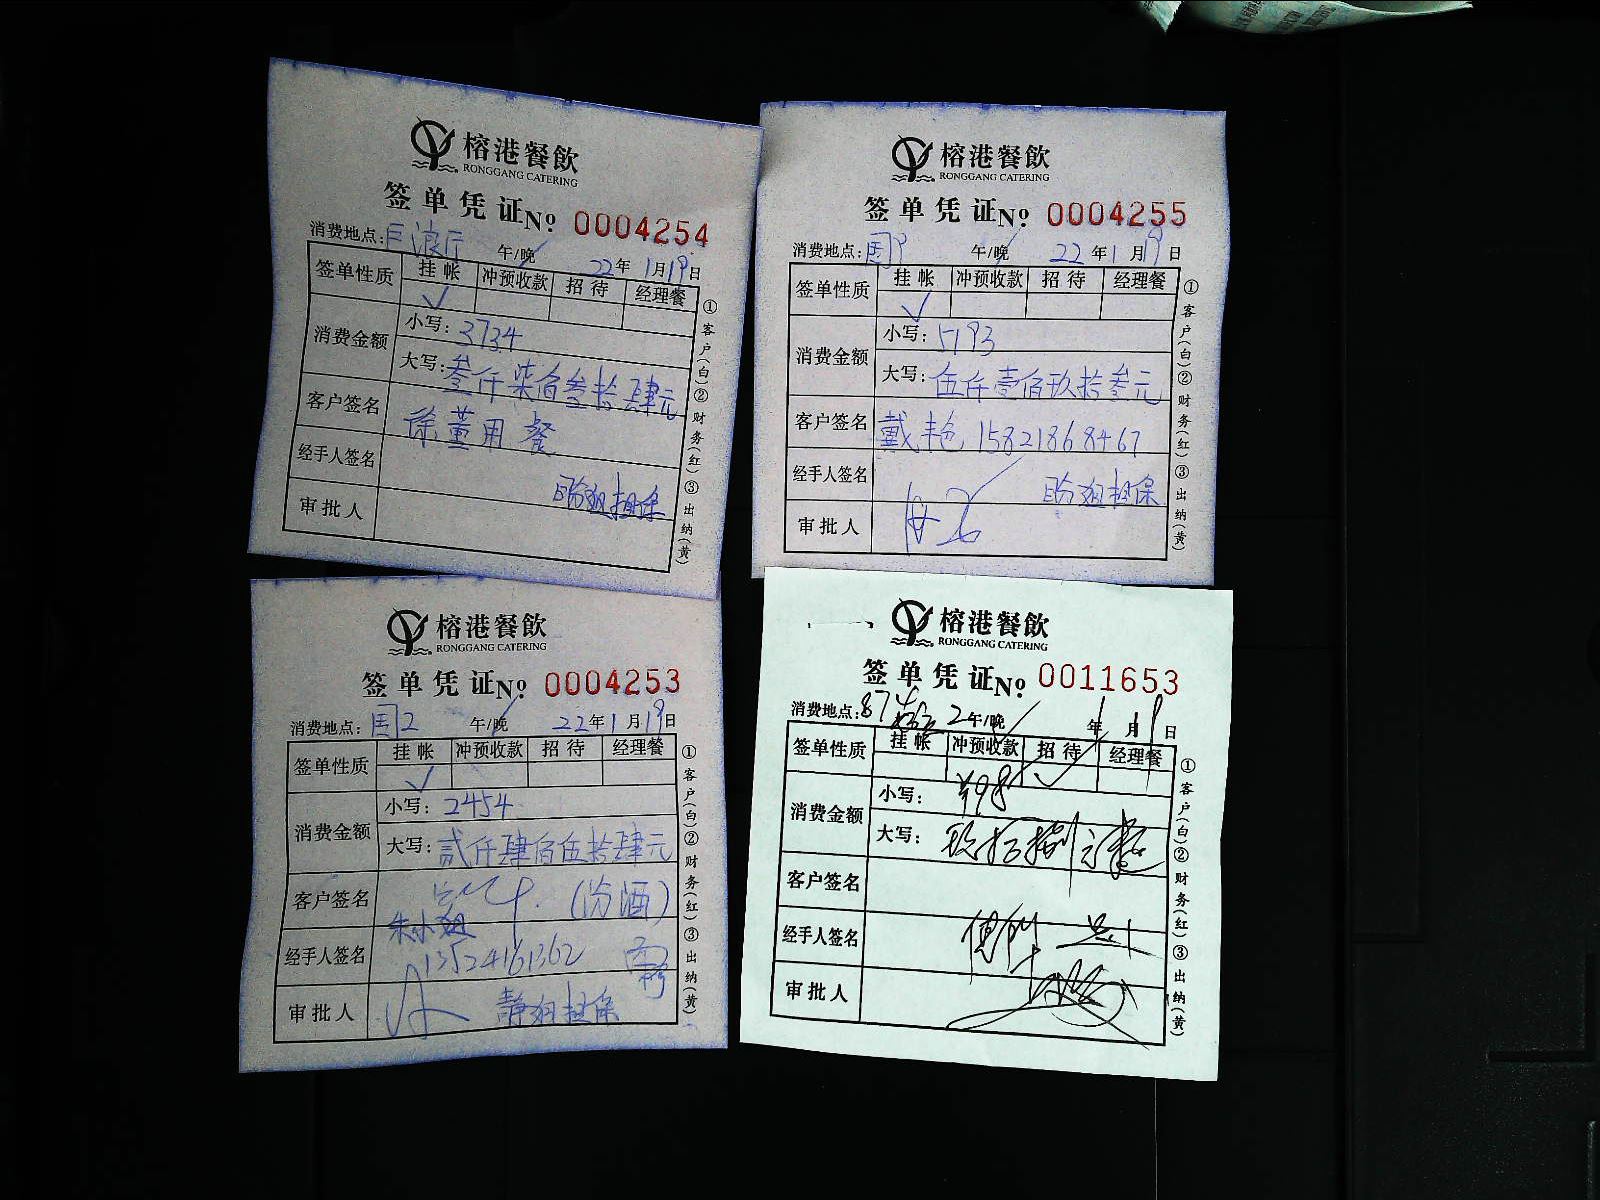 榕港餐飲
RONGGANG CATERING
签单凭证 No 0004254
消费地点:巨浪厅 午/晚 22年1月19日
签单性质 挂帐 冲预收款 招待 经理餐
✓
消费金额 小写:3734
大写:叁仟柒佰叁拾肆元
客户签名 徐董用餐
经手人签名
担保
审批人
①客户(白)②财务(红)③出纳(黄)
榕港餐飲
RONGGANG CATERING
签单凭证 No 0004255
消费地点: 午/晚 22年1月19日
签单性质 挂帐 冲预收款 招待 经理餐
✓
消费金额 小写:5193
大写:伍仟壹佰玖拾叁元
客户签名 戴 15821868467
经手人签名
担保
审批人
①客户(白)②财务(红)③出纳(黄)
榕港餐飲
RONGGANG CATERING
签单凭证 No 0004253
消费地点: 午/晚 22年1月19日
签单性质 挂帐 冲预收款 招待 经理餐
✓
消费金额 小写:2454
大写:贰仟肆佰伍拾肆元
客户签名 (汾酒)
朱小姐
经手人签名 13524161362
审批人 静姐担保
①客户(白)②财务(红)③出纳(黄)
榕港餐飲
RONGGANG CATERING
签单凭证 No 0011653
消费地点:874 午/晚 年1月19日
签单性质 挂帐 冲预收款 招待 经理餐
✓
消费金额 小写:¥98
大写:玖拾捌元整
客户签名
经手人签名
审批人
①客户(白)②财务(红)③出纳(黄)